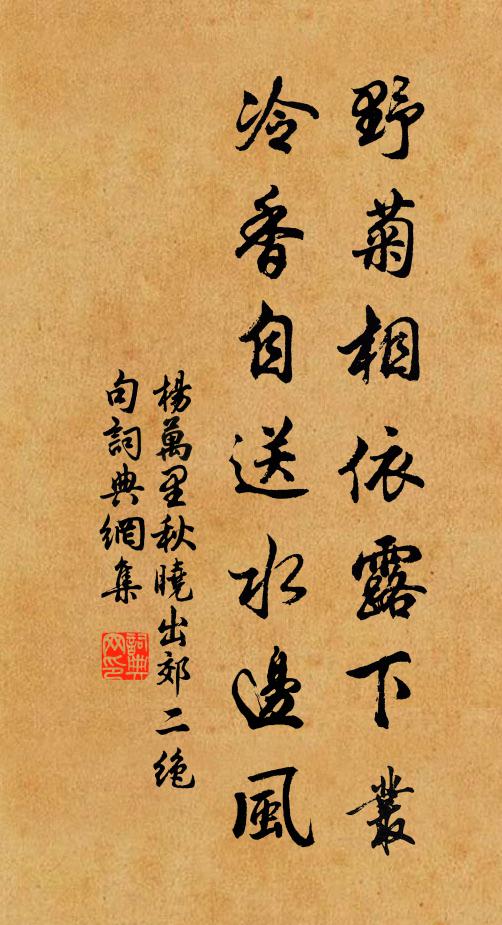 野菊相依露下叢
冷香自送水邊風
楊萬里秋曉出郊二絕
句詞典網集
詞典网印